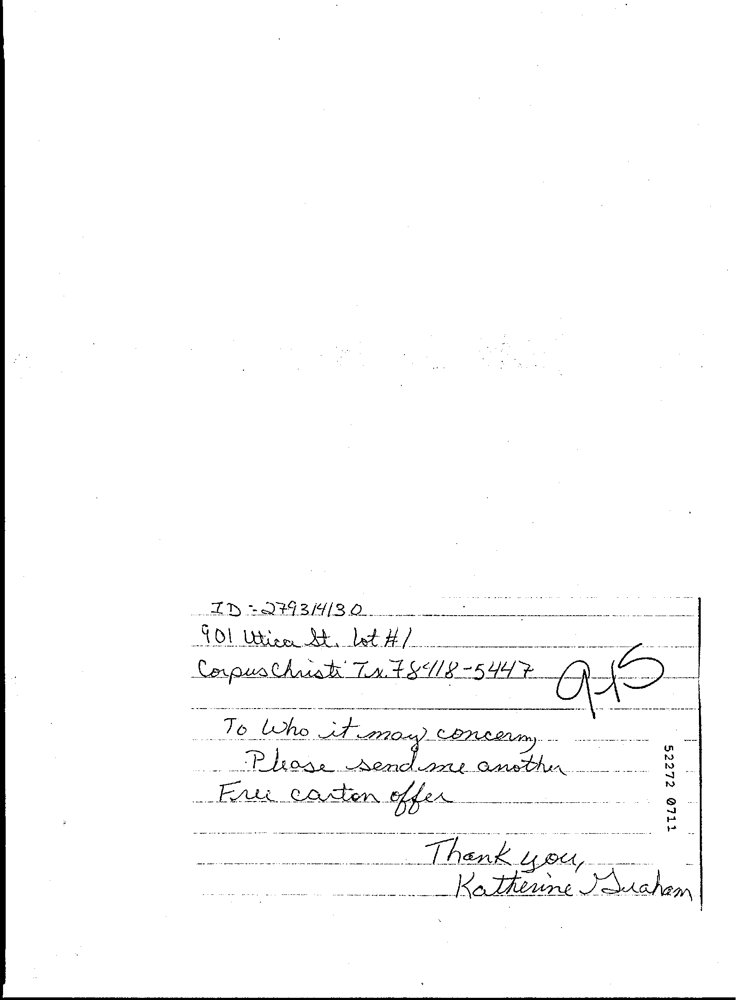 ID-279314130
901 Utica St. Lot #1
Corpus Christi Tx. 78418-5447
To Who it may concern,
Please send me another
Free carton offer
Thank you,
Katherine Graham
52272 0711